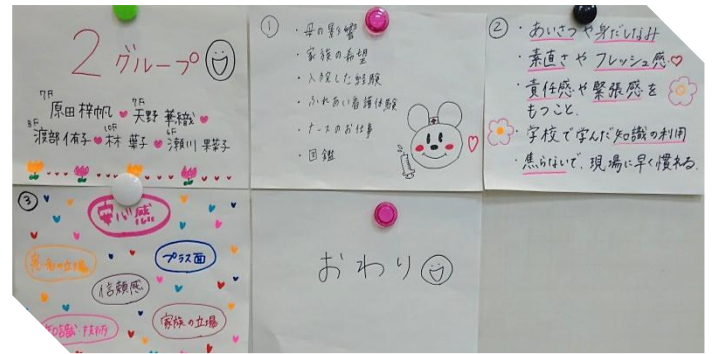 2グループ
7F 7F
原田梓帆 天野華織
8F 10F 6F
渡部侑子 林葉子 瀬川果菜子
①
・母の影響
・家族の希望
・入院した経験
・ふれあい看護体験
・ナースのお仕事
・図鑑
②
・あいさつや身だしなみ
・素直さやフレッシュ感
・責任感や緊張感を
もつこと。
・学校で学んだ知識の利用
・焦らないで、現場に早く慣れる。
③
安心感
患者の立場
プラス面
信頼感
知識・技術
家族の立場
おわり